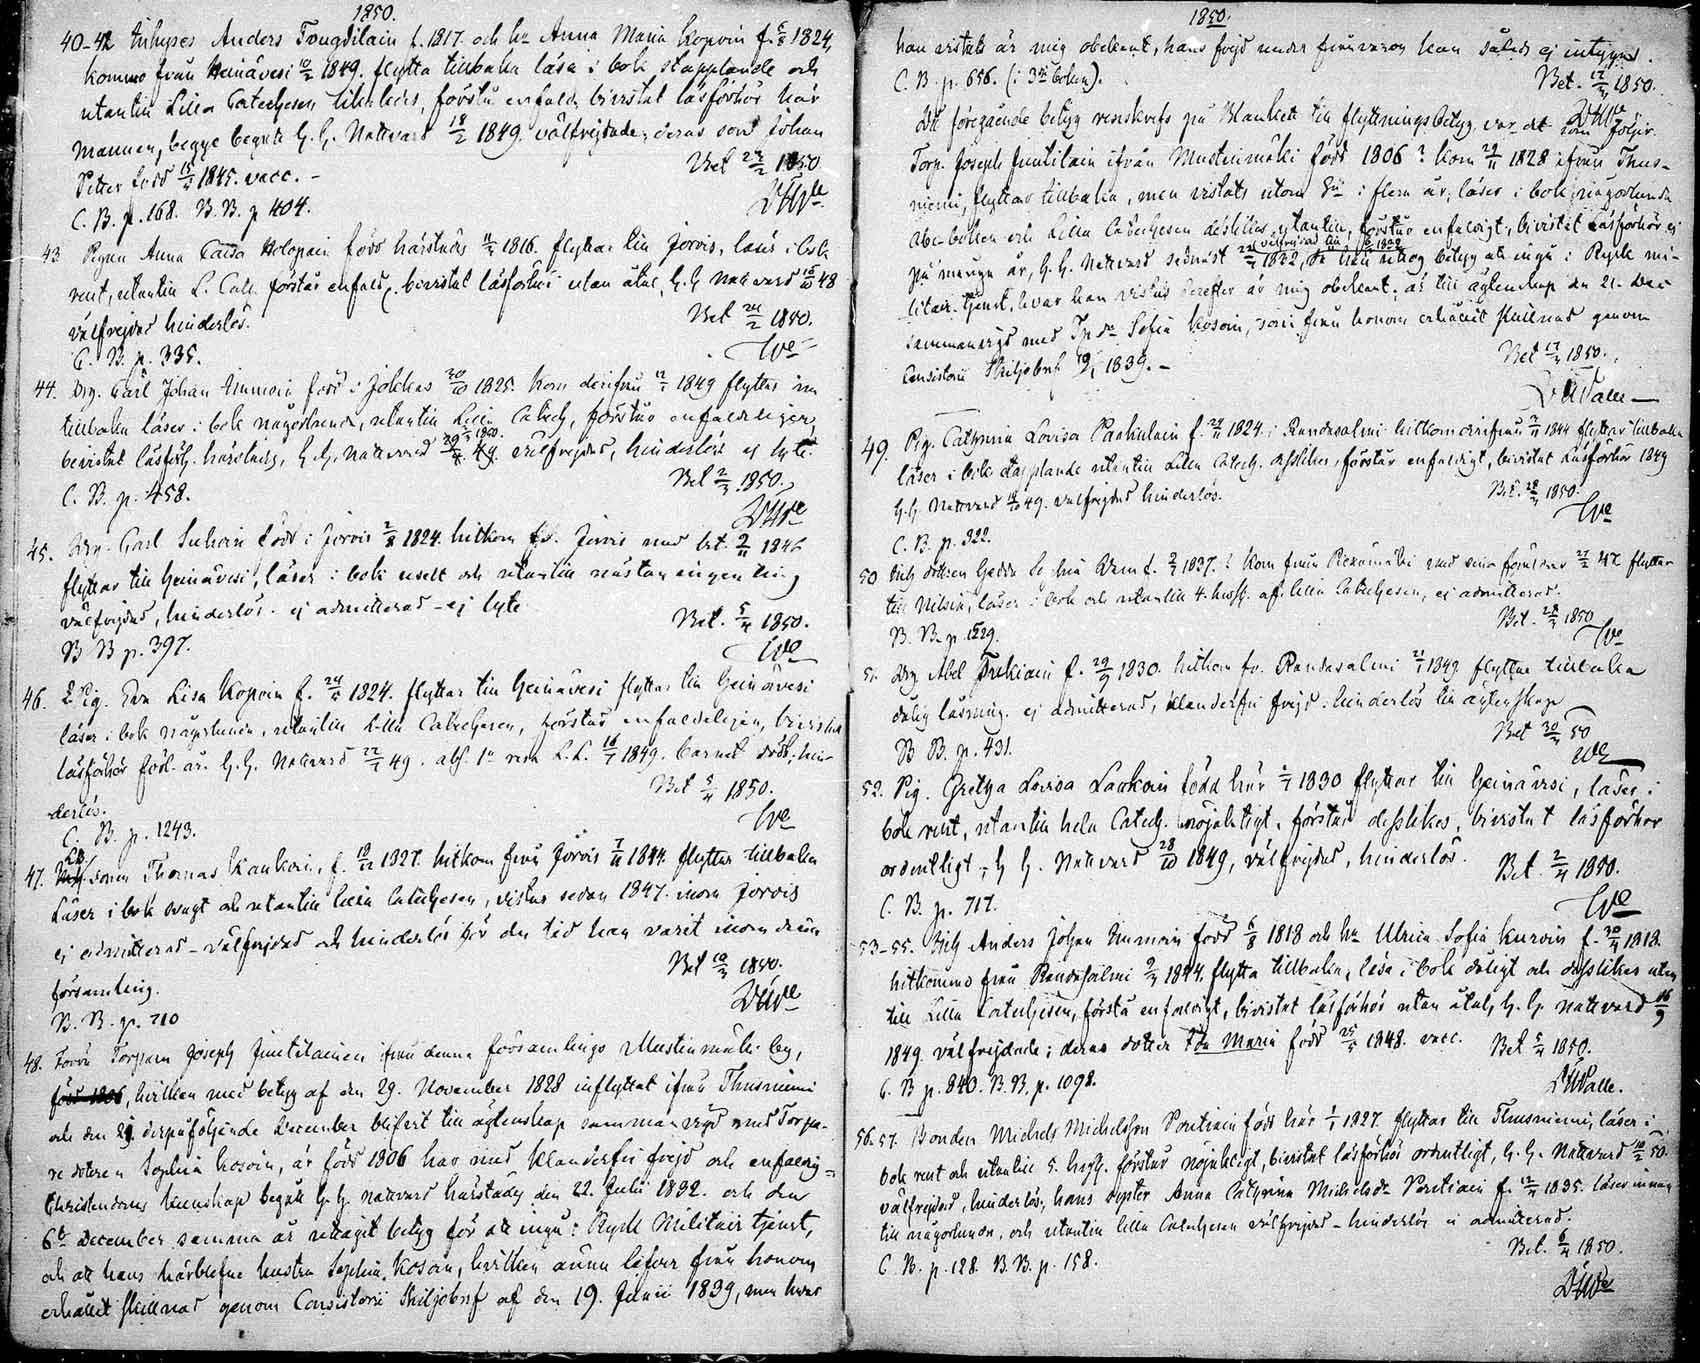 1850.
40-42 Inhyses Anders Tougdilain f. 1817. och h. Anna Maria Kopoin f. 6/8 1824,
komma från Heinävesi 10/2 1849. flytta tillbaka läsa i bok stapplande och
utantill Lilla Catechesen likaledes, förstå enfald. bivistat läsförhör här
mannen, begge begått H. H. Nattvard 18/2 1849. välfrejdade; deras son Johan
Petter född 15/4 1845. vacc. -
Bet 24/2 1850
C. B. p. 168. B. B. p 404.
43 Pigan Anna Caisa Holopain född härstädes 11/2 1816. flyttar till Jorois, läser i bok
rent, utantill L. Cat. förstår enfald. bivistat läsförhör utan åtal, H. H nattvard 15/10 48
välfrejdad hinderlös.
Bet 24/2 1850.
C. B. p. 335.
44. Drg. Carl Johan Immoin född i Jokkas 20/10 1825. kom derifrån 12/1 1849 flyttar nu
tillbaka läser i bok någorlunda, utantill Lilla Catech, förstår enfaldeligen,
bevistat läsförh. härstädes, H. H. nattvard 49. välfrejdad, hinderlös ej lyte.
Bet 2/3 1850.
C. B. p. 458.
45. Drg. Carl Suhoin född i Jorois 2/8 1824. hitkom fr. Jorois med bet. 2/11 1846
flyttar till Heinävesi, läser i bok uselt och utantill nästan ingenting
välfrejdad, hinderlös. ej admitterad - ej lyte
Bet. 5/4 1850.
B B p. 397.
46. Pig. Eva Lisa Kopoin f. 24/5 1824. flyttar till Heinävesi flyttar till Heinävesi
läser i bok någorlunda, utantill Lilla Catechesen, förstår enfaldeligen, bivistat
läsförhör förl. år. H. H. Nattvard 22/7 49. abs. 1a resa L. L. 16/9 1849. barnet dödt; hin-
derlös.
Bet 5/4 1850.
C. B. p. 1243.
47. sonen Thomas Kaukoin, f. 18/12 1827. hitkom från Jorois 7/11 1844. flyttar tillbaka
Läser i bok svagt och utantill lilla Catechesen, vistas sedan 1847. inom Jorois
ej admitterad - välfrejdad och hinderlös för den tid han varit inom denna
församling.
Bet 10/4 1850.
B. B. p. 710
48. Förra Torparn Joseph Juutilainen ifrån denna församlings Mustinmäki by,
född 1806, hvilken med betyg af den 29. November 1828 inflyttat ifrån Thusniemi
och den 21. derpåföljande December blifvit till äktenskap sammanvigd med Torpa-
re dotren Sophia Kosoin, är född 1806 har med klanderfri frejd och enfaldig
Christendoms kunskap begått H. H. nattvard härstädes den 22. Julii 1832. och den
6te December samma år uttagit betyg för att ingå i Rysk Militair tjenst,
och att hans härblefne hustru Sophia Kosoin, hvilken ännu lefver från honom
erhållit skillnad genom Consistorii Skiljobref af den 19. Junii 1839, men hvar
1850.
han vistats är mig obekant, hans frejd under frånvaron kan således ej intygas.
C. B. p. 656. (i 3die boken).
Bet. 17/4 1850.
Det föregående betyg renskrefs på Blankett till flyttningsbetyg var det som följer.
Torp. Joseph Juutilain ifrån Mustinmäki född 1806? kom 29/11 1828 ifrån Thus-
niemi, flyttar tillbaka, men vistats utom i flera år; läser i bok någorlunda
Abc-boken och Lilla Catechesen desslikes utantill, förstår enfaldigt, bivistat Läsförhör ej
på många år, H. H. Nattvard sednast 22/7 1832, då han uttog betyg att ingå i Rysk mi-
litair-tjenst, hvar han vistats derefter är mig obekant; är till äktenskap den 21. Dec
sammanvigd med Tp. Sofia Kosoin, som från honom erhållit skillnad genom
Consistorii Skiljobref 19/6 1839. -
Bet 17/4 1850.
49. Pig. Cathrina Lovisa Paukulain f. 24/11 1824. i Randasalmi hitkom derifrån 7/11 1844 flyttar tillbaka
läser i bok stapplande utantill Lilla Catech. desslikes, förstår enfaldigt, bivistat Läsförhör 1849
H. H. Nattvard 49. välfrejdad hinderlös.
Bet. 28/4 1850.
C. B. p. 322.
50 f. 2/3 1837.? kom från Pieksmäki med sina föräldrar 27/2 42 flyttar
till Nilsiä, läser i bok och utantill 4. hufst. af lilla Catechesen, ej admitterad.
Bet. 28/4 1850
B. B. p. 1529.
51. Drg Abel f. 29/9 1830. hitkom fr. Randasalmi 21/1 1849 flyttar tillbaka
dålig läsning. ej admitterad, klanderfri frejd. hinderlös till äktenskap
Bet 30/4 50
B B. p. 431.
52. Pig. Gretha Lovisa Laukoin född här 1830 flyttar till Heinävesi, läser i
bok rent, utantill hela Catech. nöjaktigt, förstår desslikes, bivistat läsförhör
ordentligt, H H. Nattvard 28/10 1849, välfrejdad, hinderlös.
Bet. 2/4 1850.
C. B. p. 717.
53-55. Anders Johan Immoin född 6/8 1818 och h. Ulrica Sofia Kurvin f. 30/4 1818.
hitkomna från Randasalmi 9/3 1844. flytta tillbaka, läsa i bok dåligt och desslikes utan
till Lilla Catechesen, förstå enfaldigt, bivistat läsförhör utan åtal, H. H nattvard 16/9
1849. välfrejdade; deras dotter Ida Maria född 25/5 1848. vacc.
Bet 5/4 1850.
C. B p. 840. B. B. p. 1098.
LHWalle.
56.57. Bonden Michels Michelsson Pontiain född här 1/1 1827. flyttar till Thusniemi, läser i
bok rent och utantill 5. hufst. förstår nöjaktigt, bivistat läsförhör ordentligt, H. H. Nattvard 10/2 50.
välfrejdad, hinderlös; hans syster Anna Cathrina Michelsdr Pontiain f. 12/4 1835. läser innan
till någorlunda, och utantill lilla Catechesen välfrejdad - hinderlös ej admitterad.
Bet. 6/4 1850.
C. B. p. 128. B. B. p. 158.